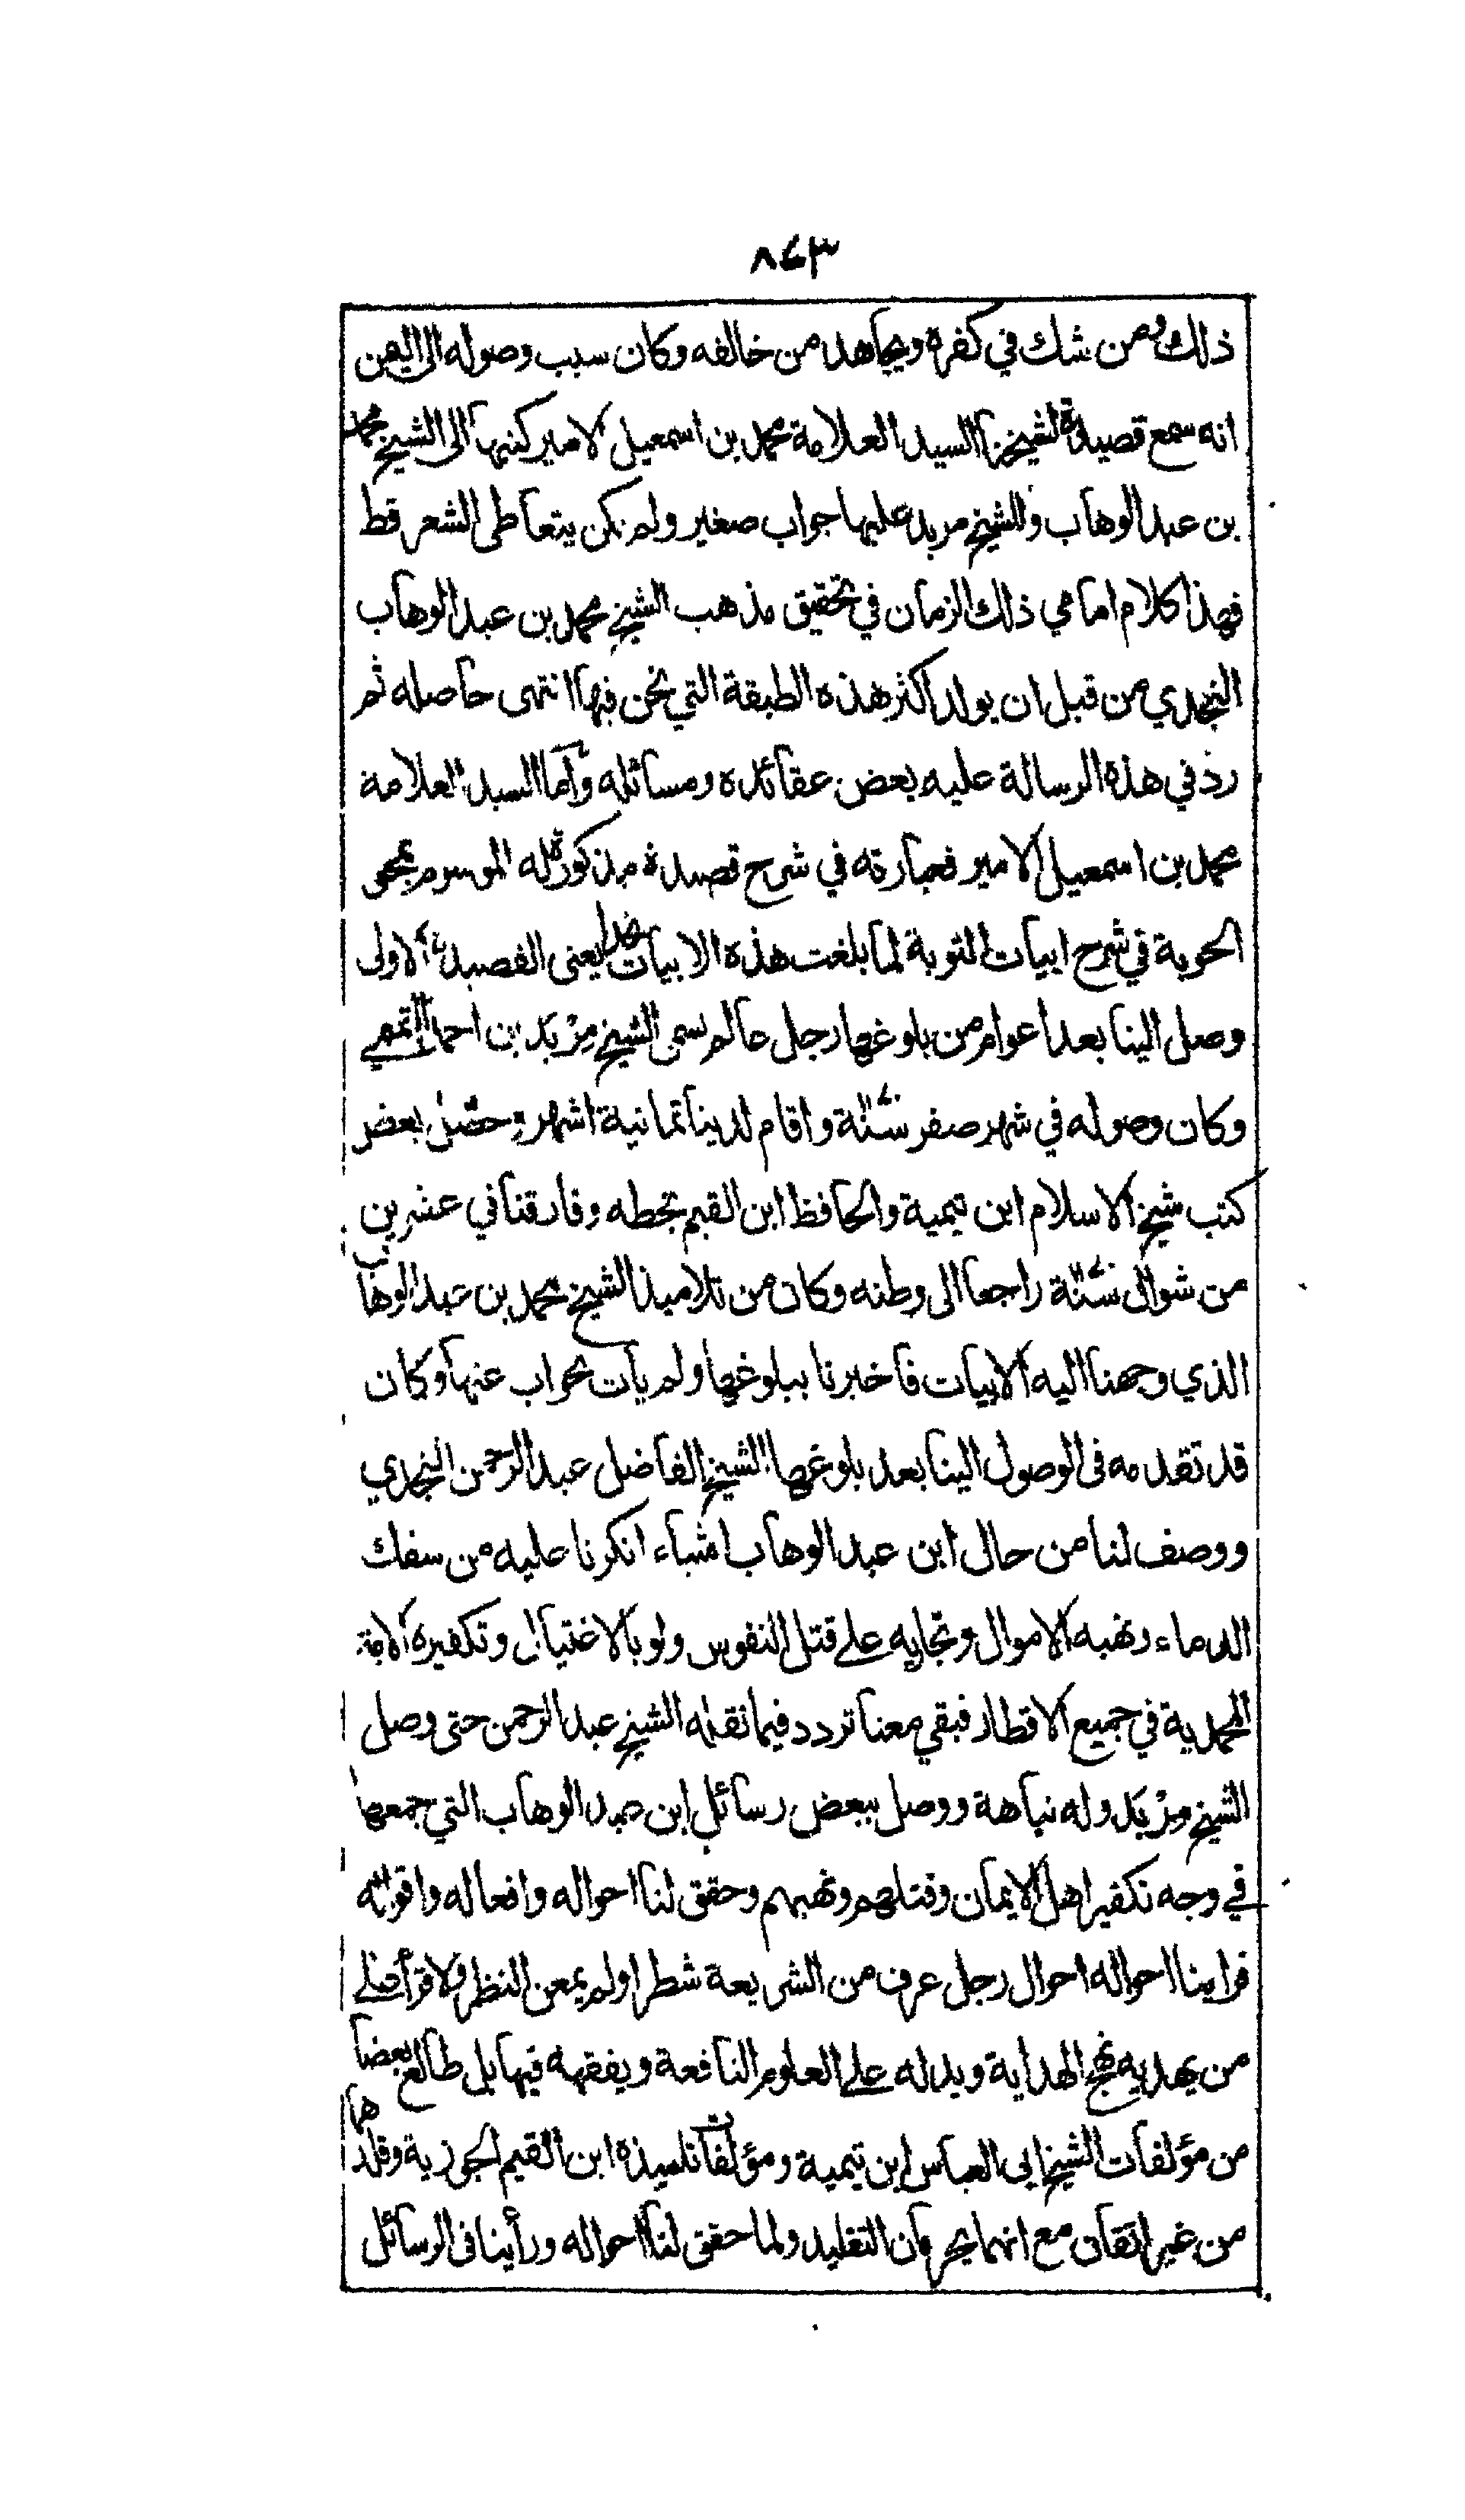 ٨٤٣
ذلك ومن شك في كفره ويجاهد من خالفه وكان سبب وصوله الى اليمن
انه سمع قصيدة لشيخنا السيد العلامة محمد بن اسمعيل الامير كتبها الى الشيخ محمد
بن عبد الوهاب وللشيخ مربد عليها جواب صغير ولم يكن يتعاطى الشعر قط
فهذا كلام امامي ذلك الزمان في تحقيق مذهب الشيخ محمد بن عبد الوهاب
النجدي من قبل ان يولد اكثر هذه الطبقة التي نحن فيها انتهى حاصله ثم
رد في هذه الرسالة عليه بعض عقائده ومسائله واما السيد العلامة
محمد بن اسمعيل الامير فعبارته في شرح قصيدة مذكورة له الموسوم بمحو
الحوبة في شرح ابيات التوبة لما بلغت هذه الابيات نجدا يعنى القصيدة الاولى
وصل الينا بعد اعوام من بلوغها رجل عالم يسمى الشيخ مِرْبَد بن احمد التميمي
وكان وصوله في شهر صفر سنة واقام لدينا ثمانية اشهر وحصل بعض
كتب شيخ الاسلام ابن تيمية والحافظ ابن القيم بخطه وفارقنا في عشرين
من شوال سنة راجعا الى وطنه وكان من تلاميذ الشيخ محمد بن عبد الوهاب
الذي وجهنا اليه الابيات فاخبرنا ببلوغها ولم يات بجواب عنها وكان
قد تقدمه فى الوصول الينا بعد بلوغها الشيخ الفاضل عبد الرحمن النجدي
ووصف لنا من حال ابن عبد الوهاب اشياء انكرنا عليه من سفك
الدماء ونهبه الاموال وتجاريه على قتل النفوس ولو بالاغتيال وتكفيره الامة
المحمدية في جميع الاقطار فبقي معنا تردد فيما نقله الشيخ عبد الرحمن حتى وصل
الشيخ مِرْبَد وله نباهة ووصل ببعض رسائل ابن عبد الوهاب التي جمعها
في وجه تكفير اهل الايمان وقتلهم ونهبهم وحقق لنا احواله وافعاله واقواله
فراينا احواله احوال رجل عرف من الشريعة شطرا ولم يمعن النظر ولا قرأ على
من يهديه نهج الهداية ويدله على العلوم النافعة ويفقهه فيها بل طالع بعضا
من مؤلفات الشيخ ابي العباس ابن تيمية ومؤلفات تلميذه ابن القيم الجوزية وقلدهما
من غير اتقان مع انهما يحرمان التقليد ولما حقق لنا احواله ورأينا فى الرسائل